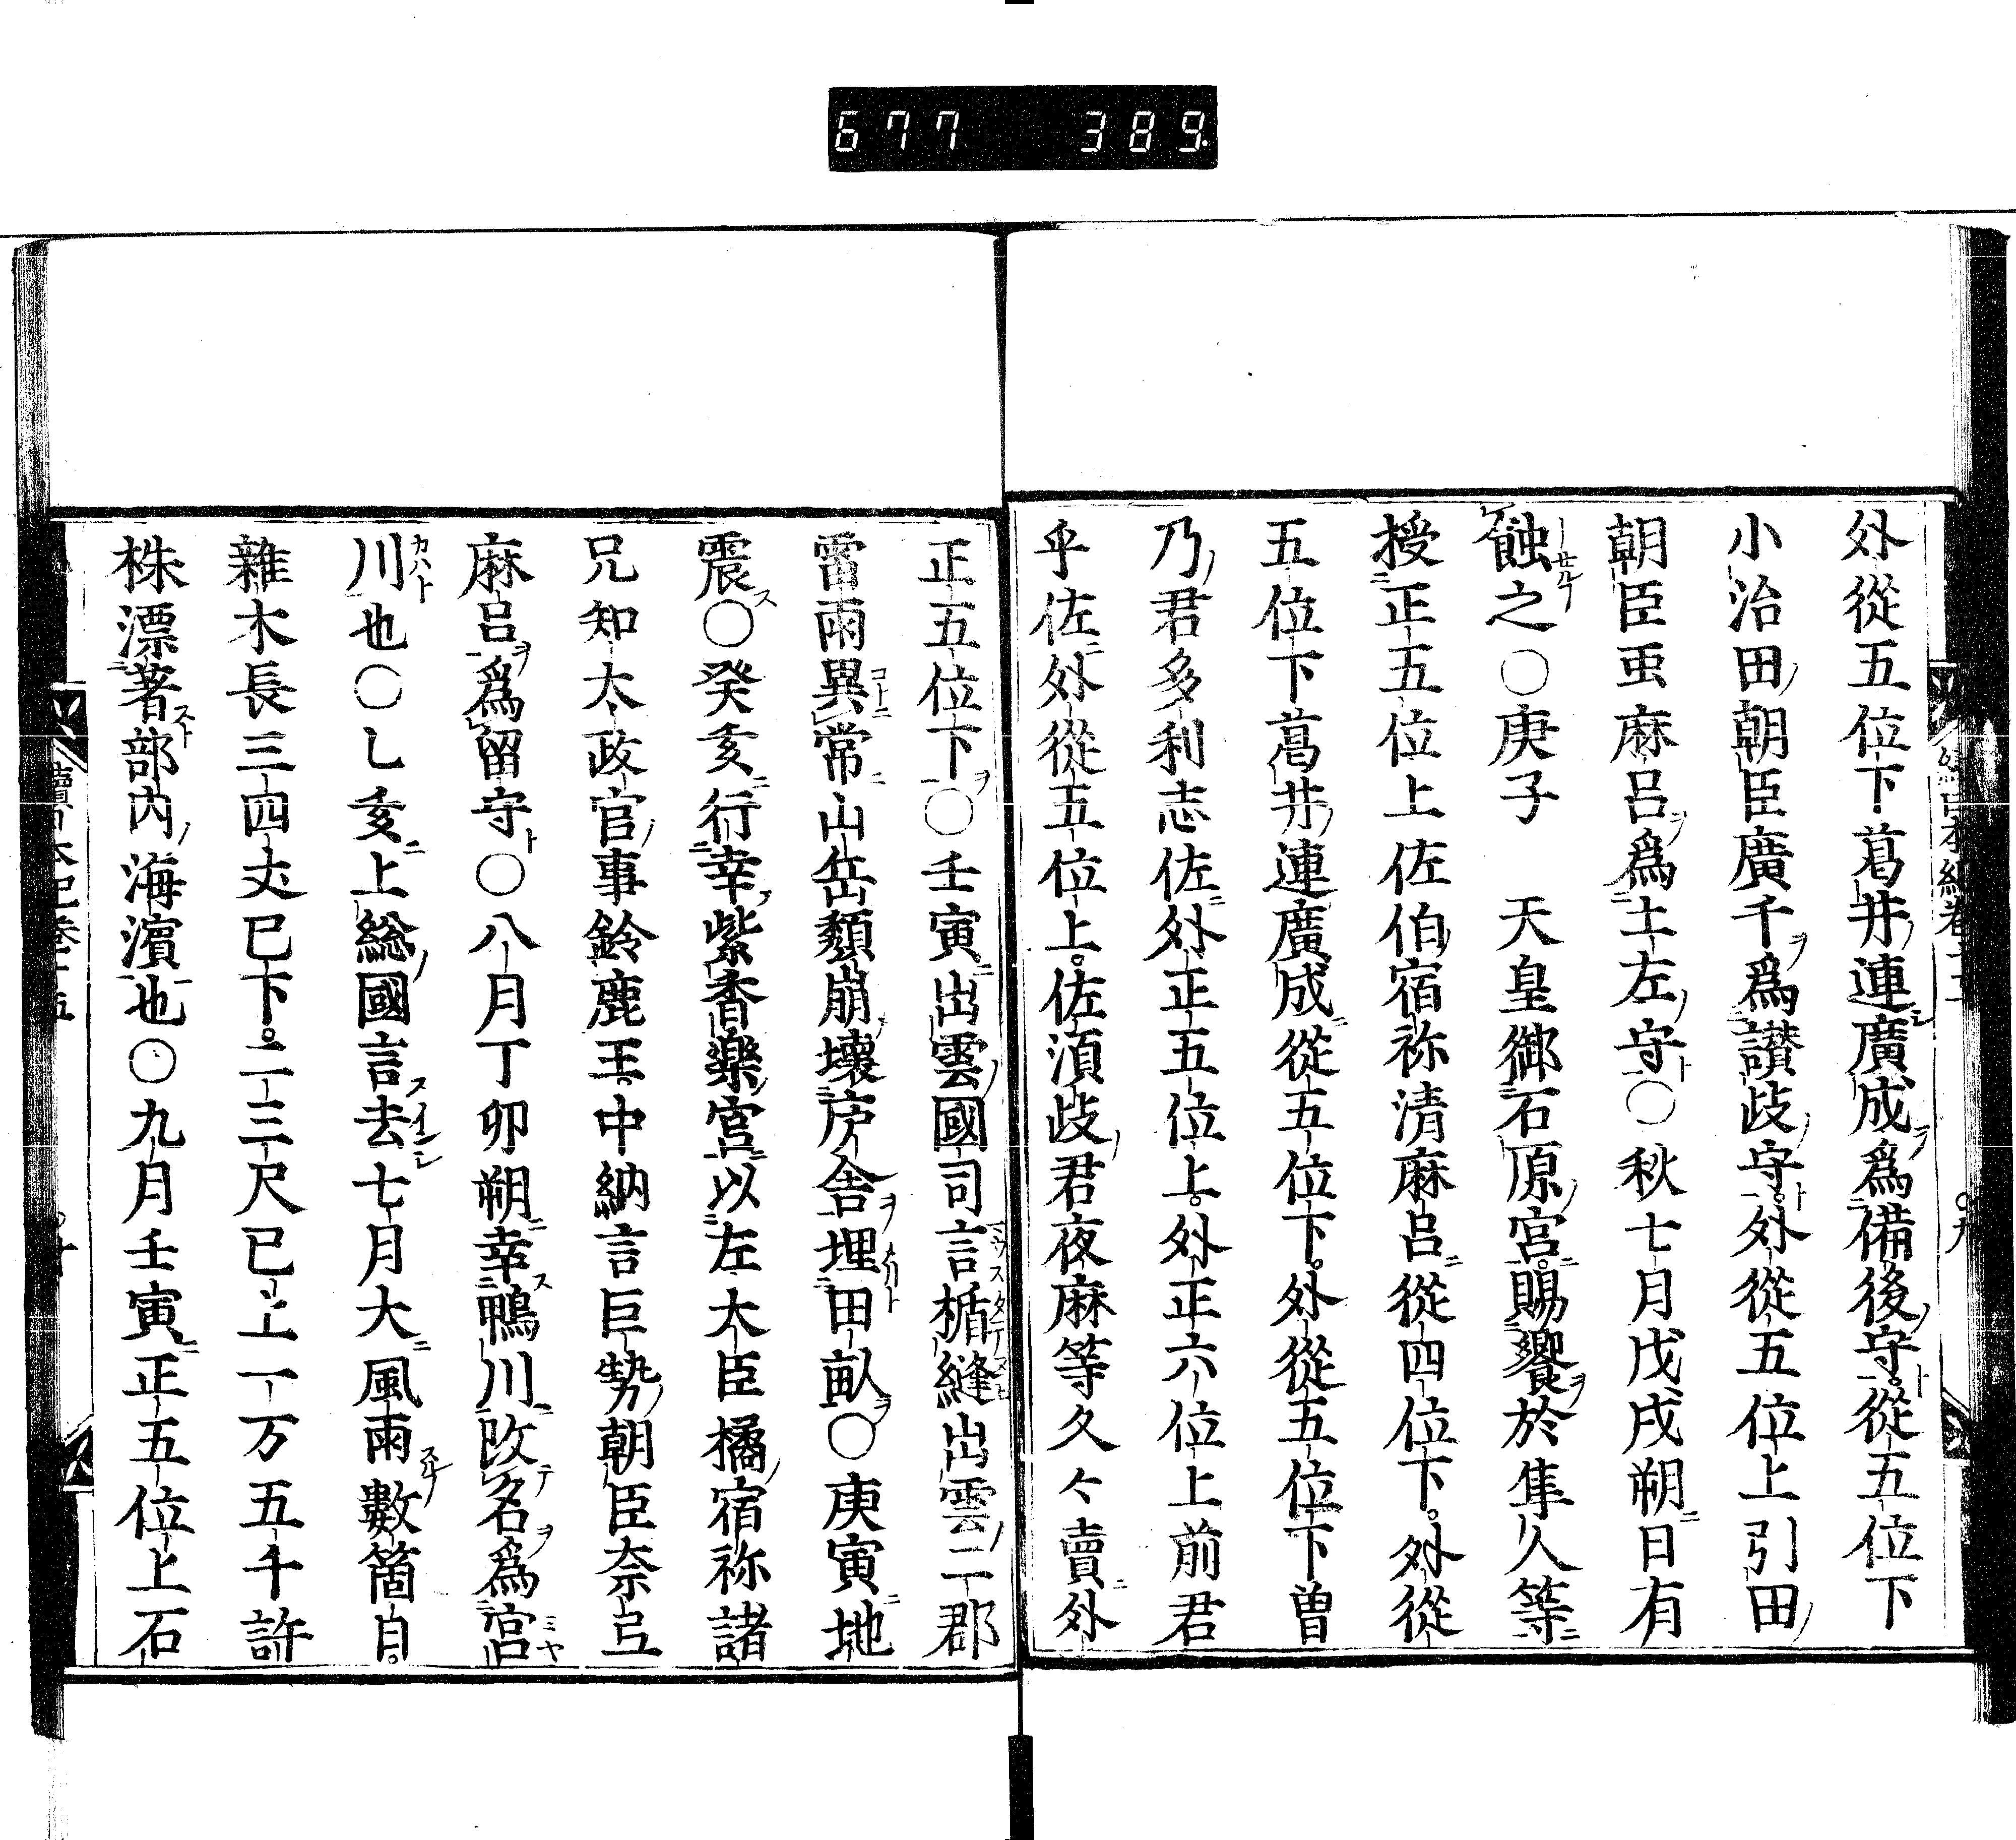 677 389
外從五位下葛井連廣成爲備後守。從五位下
小治田朝臣廣千爲讃岐守。外從五位上引田
朝臣䖝麻呂爲土左守〇秋七月戊戌朔日有
蝕之〇庚子 天皇御石原宮。賜饗於隼人等
授正五位上佐伯宿祢清麻呂從四位下。外從
五位下葛井連廣成從五位下。外從五位下曽
乃君多利志佐外正五位上。外正六位上前君
乎佐外從五位上。佐湏岐君夜麻等久々賣外
正五位下〇壬寅出雲國司言楯縫出雲二郡
雷雨異常山岳頽崩壊庐舎埋田畝〇庚寅地
震〇癸亥行幸紫香樂宮以左大臣橘宿祢諸
兄知太政官事鈴鹿王。中納言巨勢朝臣奈弖
麻呂爲留守〇八月丁卯朔幸鴨川改名爲宮
川也〇乚亥上総國言去七月大風雨數箇日。
雜木長三四丈已下。二三尺已上一万五千許
株漂著部内海濱也〇九月壬寅正五位上石